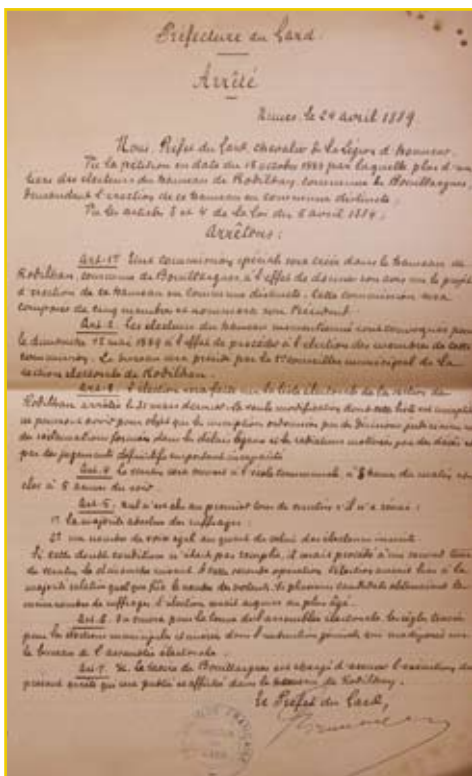 Préfecture du Gard
Arrêté
Nimes, le 24 avril 1889.
Nous, Préfet du Gard, chevalier de la Légion d'honneur.
Vu la pétition en date du 18 octobre 1888 par laquelle plus d'un
tiers des électeurs du hameau de Rodilhan, commune de Bouillargues
demandent l'érection de ce hameau en commune distincte;
Vu les articles 3 et 4 de la loi du 5 avril 1884;
Arrêtons:
Art. 1er Une commission spéciale sera créée dans le hameau de
Rodilhan, commune de Bouillargues, à l'effet de donner son avis sur le projet
d'érection de ce hameau en commune distincte. Cette commission sera
composée de cinq membres et nommera son Président.
Art. 2. Les électeurs du hameau mentionné sont convoqués pour
le dimanche 12 mai 1889 à l'effet de procéder à l'élection des membres de cette
commission. Le bureau sera présidé par le 1er conseiller municipal de la
section électorale de Rodilhan.
Art. 3. L'élection sera faite sur la liste électorale de la section de
Rodilhan arrêtée le 31 mars dernier. La seule modification dont cette liste est
ne pouvant avoir pour objet que les inscriptions ordonnées par
des réclamations formées dans le délai légal et les radiations motivées par des décès et
par des jugements définitifs emportant incapacité
Art. 4. Le scrutin sera ouvert à l'école communale, à 8 heures du matin et
clos à 6 heures du soir.
Art. 5. Nul n'est élu au premier tour de scrutin s'il n'a réuni:
1° la majorité absolue des suffrages;
2° un nombre de voix égal au quart de celui des électeurs inscrits.
Si cette double condition n'était pas remplie, il serait procédé à un second tour
de scrutin le dimanche suivant. A cette seconde opération l'élection aurait lieu à la
majorité relative quel que fût le nombre des votants. Si plusieurs candidats obtenaient le
même nombre de suffrages l'élection serait acquise au plus âgé.
Art. 6. On suivra pour la tenue de l'assemblée électorale les règles tracées
pour les élections municipales et insérées dans l'instruction générale qui sera déposée sur
le bureau de l'assemblée électorale.
Art. 7. M. le Maire de Bouillargues est chargé d'assurer l'exécution du
présent arrêté qui sera publié et affiché dans le hameau de Rodilhan.
Le Préfet du Gard,